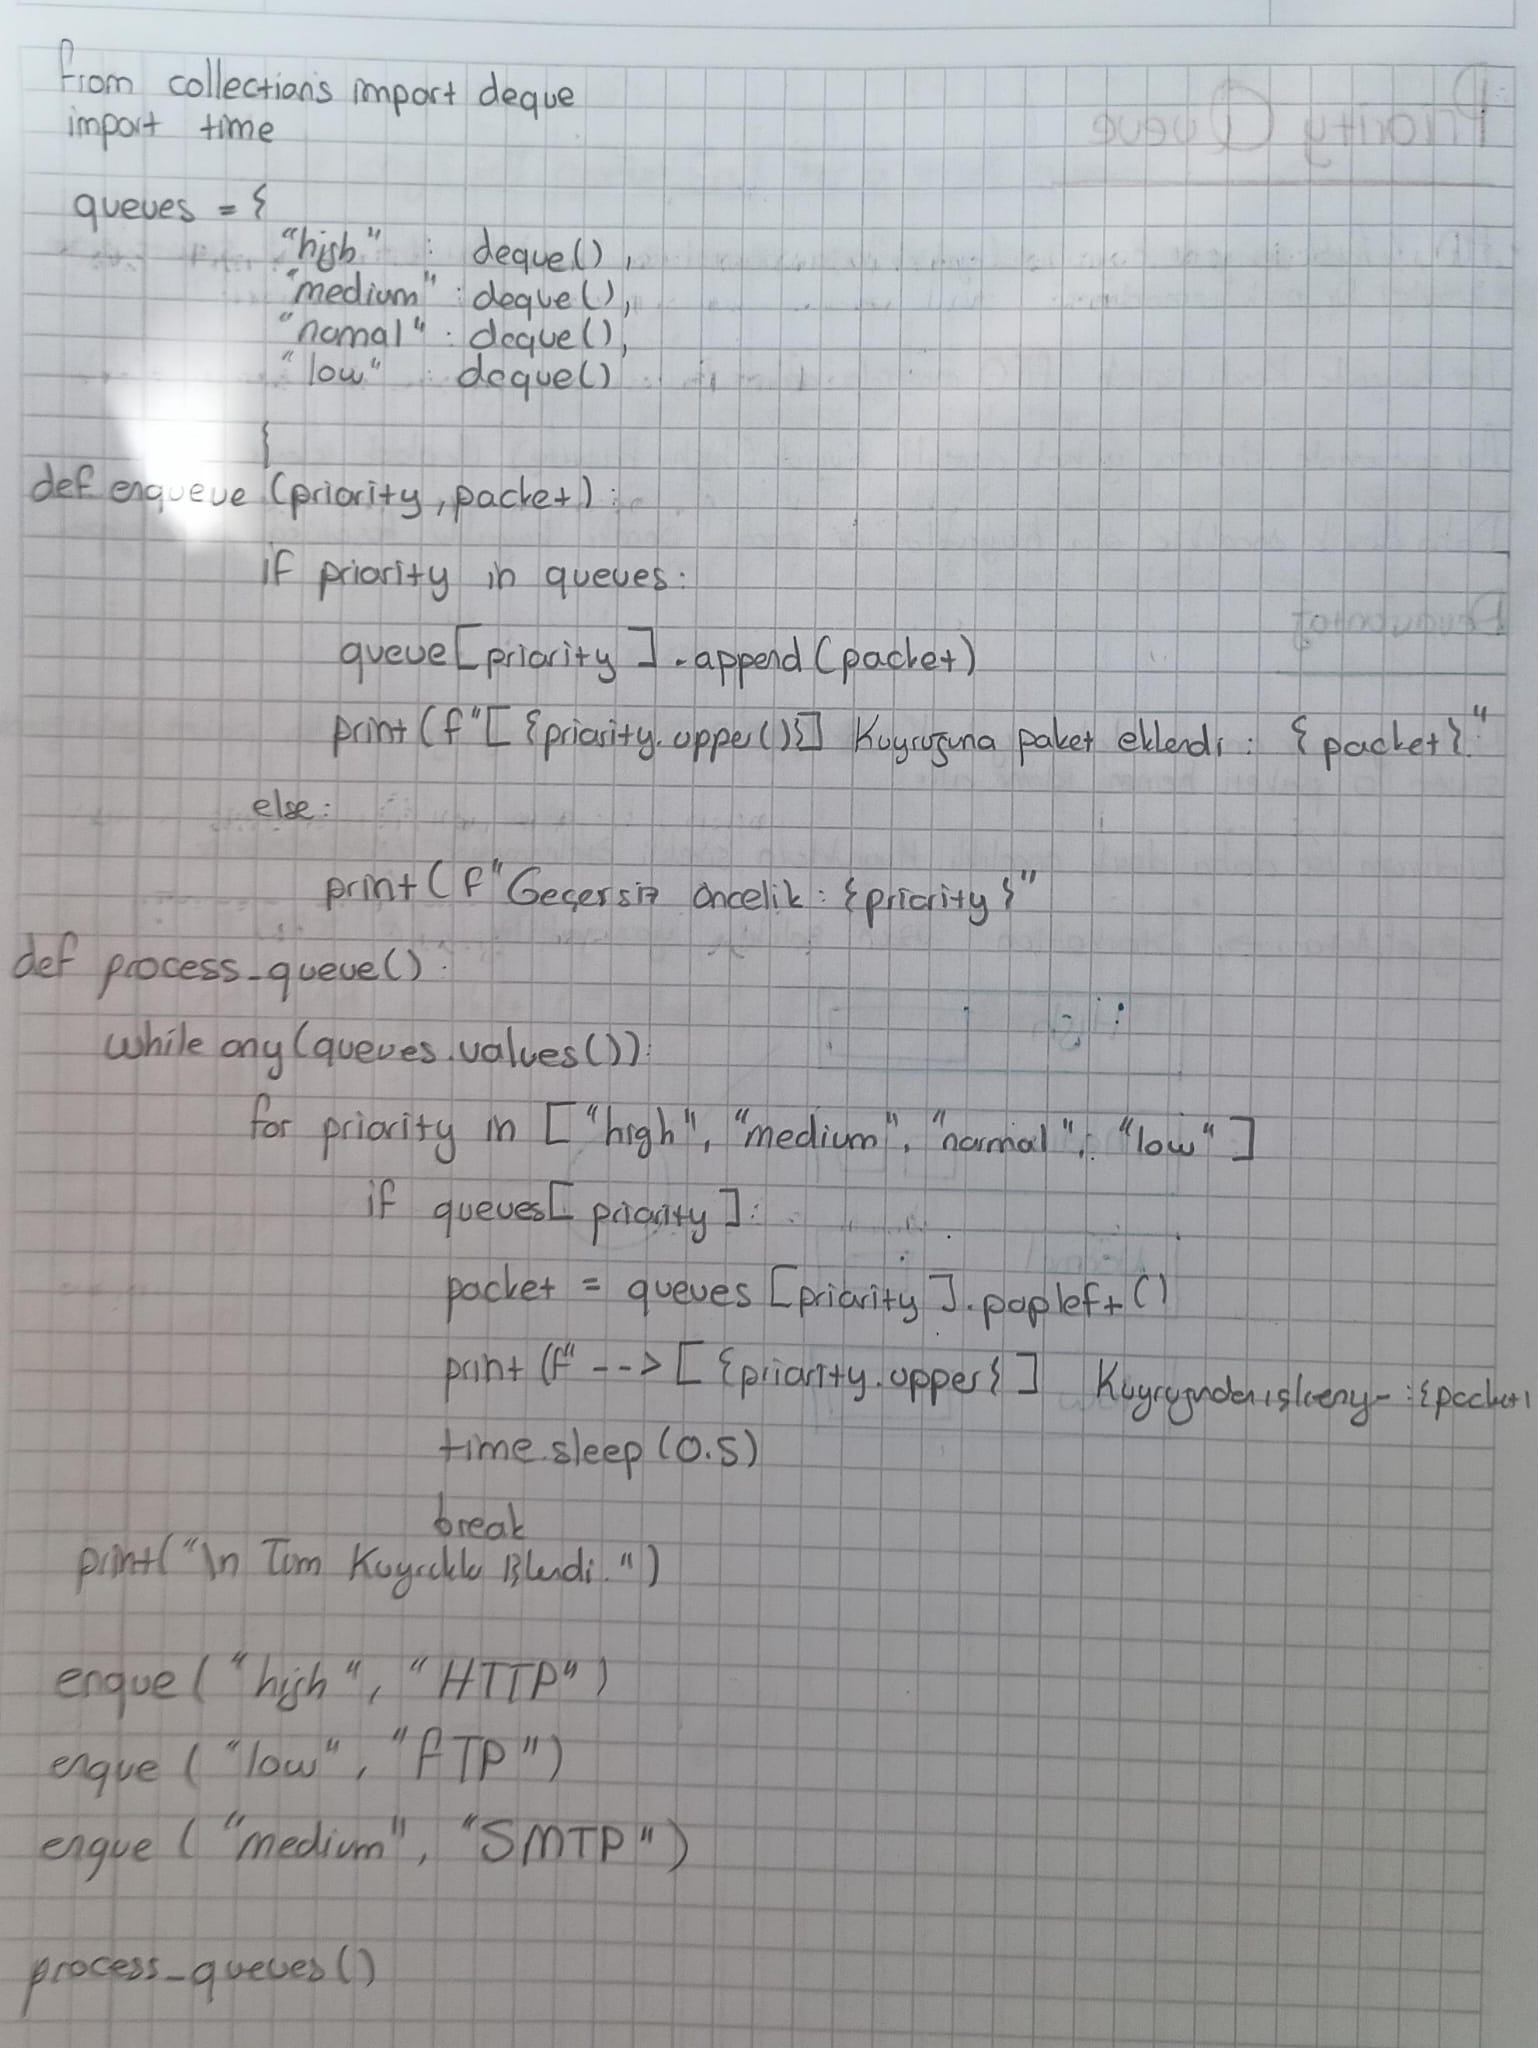 from collections import deque
import time
queues = {
"high" : deque(),
"medium" : deque(),
"nomal" : deque(),
"low" : deque()
}
def enqueue (priority, packet):
if priority in queues:
queue[priority].append(packet)
print(f"[{priority.upper()}] Kuyruğuna paket eklendi : {packet}."
else:
print(f"Geçersiz öncelik : {priority}"
def process_queue():
while any(queues.values()):
for priority in ["high", "medium", "normal", "low"]
if queues[priority]:
packet = queues[priority].popleft()
print(f"-->[{priority.upper}] :{packet
time.sleep(0.5)
break
print("\n Tüm
enque("high", "HTTP")
enque("low", "FTP")
enque("medium", "SMTP")
process_queues()
Priority Queue